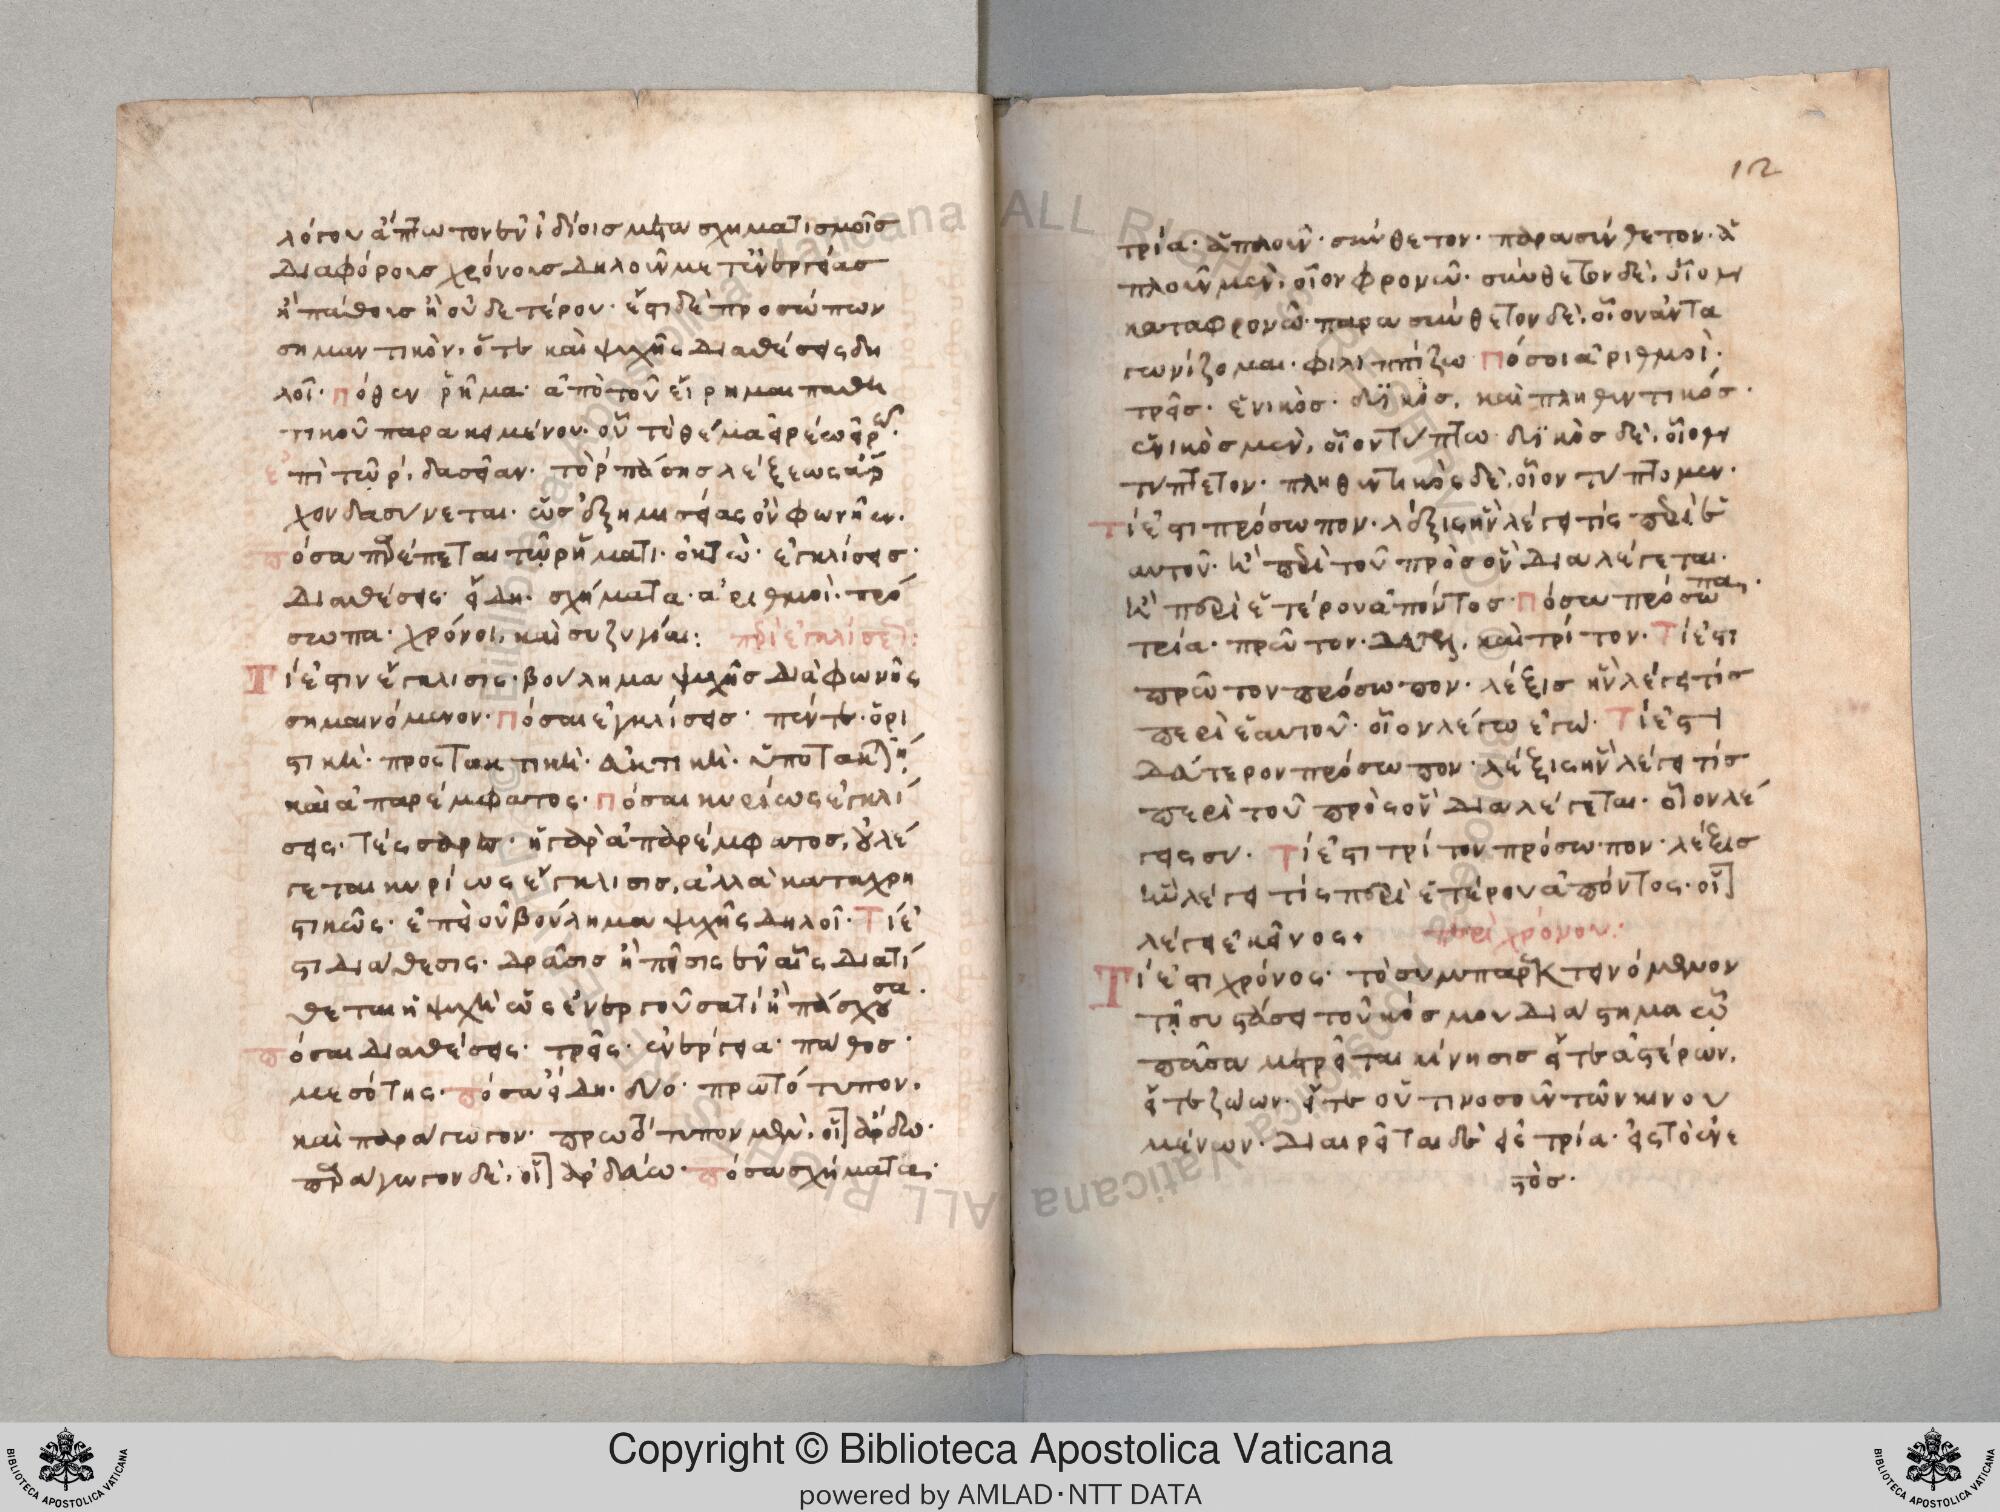 λόγου ἄπτωτον ἐν ἰδίοις μετασχηματισμοῖς
διαφόροις χρόνοις δηλοῦν μετ' ἐνεργείας
ἢ πάθους ἢ οὐδετέρου· ἔστι δὲ προσώπων
σημαντικὸν, ὅτε καὶ ψυχῆς διαθέσεις δη
λοῖ· πόθεν ῥῆμα· ἀπὸ τοῦ εἴρημαι παθη
τικοῦ παρακειμένου· οὗ τὸ θέμα
πόσα παρέπεται τῷ ῥήματι· ὀκτώ· ἐγκλίσεις·
διαθέσεις· εἴδη· σχήματα· ἀριθμοὶ· πρό
σωπα· χρόνοι, καὶ συζυγίαι: περὶ ἐγκλίσεων:
Τί ἐστιν ἔγκλισις· βούλημα ψυχῆς διὰ φωνῆς
σημαινόμενον· Πόσαι ἐγκλίσεις· πέντε· ὁρι
στικὴ· προστακτικὴ· εὐκτικὴ· ὑποτακτικὴ,
καὶ ἀπαρέμφατος· πόσαι κυρίως ἐγκλί
σεις· τέσσαρες· ἡ γὰρ ἀπαρέμφατος, οὐ λέ
γεται κυρίως ἔγκλισις, ἀλλὰ καταχρη
στικῶς· ἐπεὶ οὐ βούλημα ψυχῆς δηλοῖ· Τί ἐ
στι διάθεσις· δρᾶσις ἢ πεῖσις ἐν αἷς διατί
θεται ἡ ψυχὴ ὡς ἐνεργοῦσά τι ἢ πάσχουσα·
πόσαι διαθέσεις· τρεῖς· ἐνέργεια· πάθος·
μεσότης· πόσα εἴδη· δύο· πρωτότυπον,
καὶ παράγωγον· πρωτότυπον μὲν, οἷον ἄρδω·
παράγωγον δὲ, οἷον ἀρδεύω· πόσα σχήματα·
12
τρία· ἁπλοῦν· σύνθετον· παρασύνθετον· ἁ
πλοῦν μὲν, οἷον φρονῶ· σύνθετον δὲ, οἷον
καταφρονῶ· παρασύνθετον δὲ, οἷον ἀντι
γωνίζομαι· φιλιππίζω Πόσοι ἀριθμοὶ·
τρεῖς· ἑνικὸς· δυϊκὸς, καὶ πληθυντικός·
ἑνικὸς μὲν, οἷον τύπτω· δυϊκὸς δὲ, οἷον
τύπτετον· πληθυντικὸς δὲ, οἷον τύπτομεν·
Τί ἐστι πρόσωπον· λέξις ἣν λέγει τίς περὶ ἑ
αυτοῦ· ἢ περὶ τοῦ πρὸς ὃν διαλέγεται·
ἢ περὶ ἑτέρου ἀπόντος· Πόσα πρόσωπα·
τρία· πρῶτον· δεύτερον, καὶ τρίτον· Τί ἐστι
πρῶτον πρόσωπον· λέξις ἣν λέγει τίς
περὶ ἑαυτοῦ· οἷον λέγω ἐγώ· Τί ἐστι
δεύτερον πρόσωπον· λέξις ἣν λέγει τίς
περὶ τοῦ πρὸς ὃν διαλέγεται· οἷον λέ
γεις συ· Τί ἐστι τρίτον πρόσωπον· λέξις
ἣν λέγει τίς περὶ ἑτέρου ἀπόντος· οἷον
λέγει ἐκεῖνος+ περὶ χρόνου:
Τί ἐστι χρόνος· τὸ συμπαρεκτεινόμενον
τῇ συστάσει τοῦ κόσμου διάστημα ἐν ᾧ
πᾶσα μετρεῖται κίνησις εἴτε ἀστέρων,
εἴτε ζώων· εἴτε οὗτινοσοῦν τῶν κινου
μένων· διαιρεῖται δὲ εἰς τρία· εἰς τὸ ἐνε
στὸς·